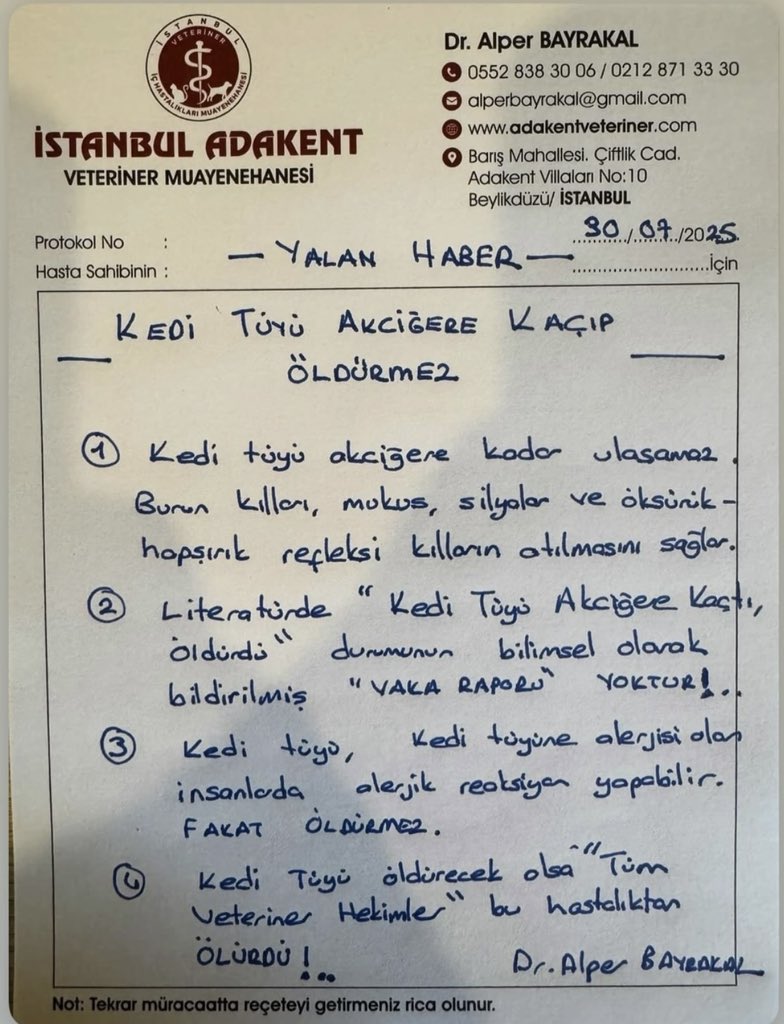 İSTANBUL
VETERİNER
İÇ HASTALIKLARI MUAYENEHANESİ
İSTANBUL ADAKENT
VETERİNER MUAYENEHANESİ
Dr. Alper BAYRAKAL
0552 838 30 06 / 0212 871 33 30
alperbayrakal@gmail.com
www.adakentveteriner.com
Barış Mahallesi. Çiftlik Cad.
Adakent Villaları No:10
Beylikdüzü/ İSTANBUL
30/07/2025
Protokol No :
Hasta Sahibinin : — YALAN HABER — ........................İçin
KEDİ TÜYÜ AKCİĞERE KAÇIP
— ÖLDÜRMEZ —
① Kedi tüyü akciğere kadar ulaşamaz.
Burun kılları, mukus, silyalar ve öksürük-
hapşırık refleksi kılların atılmasını sağlar.
② Literatürde "Kedi Tüyü Akciğere Kaçtı,
öldürdü" durumunun bilimsel olarak
bildirilmiş "VAKA RAPORU" YOKTUR!..
③ Kedi tüyü, kedi tüyüne alerjisi olan
insanlarda alerjik reaksiyon yapabilir.
FAKAT ÖLDÜRMEZ.
④ Kedi Tüyü öldürecek olsa "Tüm
Veteriner Hekimler" bu hastalıktan
ÖLÜRDÜ!...
Dr. Alper BAYRAKAL
Not: Tekrar müracaatta reçeteyi getirmeniz rica olunur.